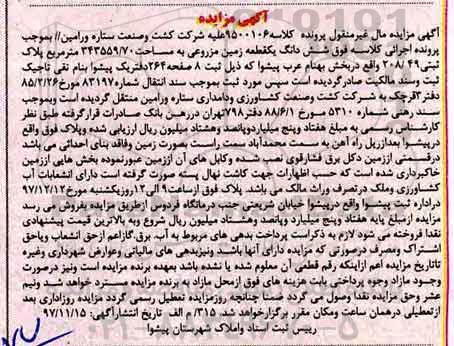 آگهی مزایده
آگهی مزایده مال غیرمنقول پرونده کلاسه ۹۵۰۰۱۰۶علیه شرکت کشت وصنعت ستاره ورامین// بموجب
پرونده اجرائی کلاسه فوق شش دانگ یکقطعه زمین مزروعی به مساحت۳۴۳۵۵۹/۷۰ مترمربع پلاک
ثبتی۲۰۸/۴۹ واقع دربخش بهنام عرب پیشوا که ذیل ثبت ۸ صفحه۲۶۴دفتریک پیشوا بنام نقی تاجیک
ثبت وسند مالکیت صادرگردیده است سپس مورد ثبت بموجب سند انتقال شماره ۸۳۱۹۷ مورخ۸۵/۲/۲۶
دفتر۳قرچک به شرکت کشت وصنعت کشاورزی ودامداری ستاره ورامین منتقل گردیده است وبموجب
سند رهنی شماره ۵۳۱۰ مورخ ۸۸/۶/۱ دفتر۷۹۸تهران دررهن بانک صادرات قرارگرفته طبق نظر
کارشناس رسمی به مبلغ هفتاد وپنج میلیاردوپانصد وهشتاد میلیون ریال ارزیابی شده وپلاک فوق واقع
درپیشوا بعدازپل راه آهن به سمت محمدآباد سمت راست بصورت زمین وفاقد بنای احداثی می باشد
درقسمتی اززمین دکل برق فشارقوی نصب شده وکابل های آن اززمین عبورنموده بخش هایی اززمین
خاکبرداری شده است که حسب اظهارات جهت کاشت نهال پسته صورت گرفته است دارای انشعابات آب
کشاورزی وملک درتصرف وراث مالک می باشد. پلاک فوق ازساعت۹ الی۱۲روزیکشنبه مورخ۹۷/۱۲/۱۲
دراداره ثبت پیشوا واقع درپیشوا خیابان شریعتی جنب درمانگاه فردوس ازطریق مزایده بفروش می رسد
مزایده ازمبلغ پایه هفتاد وپنج میلیارد وپانصد وهشتاد میلیون ریال شروع وبه بالاترین قیمت پیشنهادی
نقدا فروخته می شود لازم به ذکراست پرداخت بدهی های مربوط به آب، برق،گازاعم ازحق انشعاب ویاحق
اشتراک ومصرف درصورتی که مزایده دارای آنها باشدو ونیزبدهی های مالیاتی وعوارض شهرداری وغیره
تاتاریخ مزایده اعم ازاینکه رقم قطعی آن معلوم شده یا نشده باشد بعهده برنده مزایده است ونیز درصورت
وجود مازاد وجوه پرداختی بابت هزینه های فوق ازمحل مازاد به برنده مزایده مسترد خواهد شد ونیم
عشر وحق مزایده نقدا وصول می گردد ضمنا چنانچه روزمزایده تعطیل رسمی گردد مزایده روزاداری بعد
ازتعطیلی درهمان ساعت ومکان مقرر برگزارخواهد شد. ۳۱۵/ م الف تاریخ انتشارآگهی: ۹۷/۱۱/۱۵
رییس ثبت اسناد واملاک شهرستان پیشوا